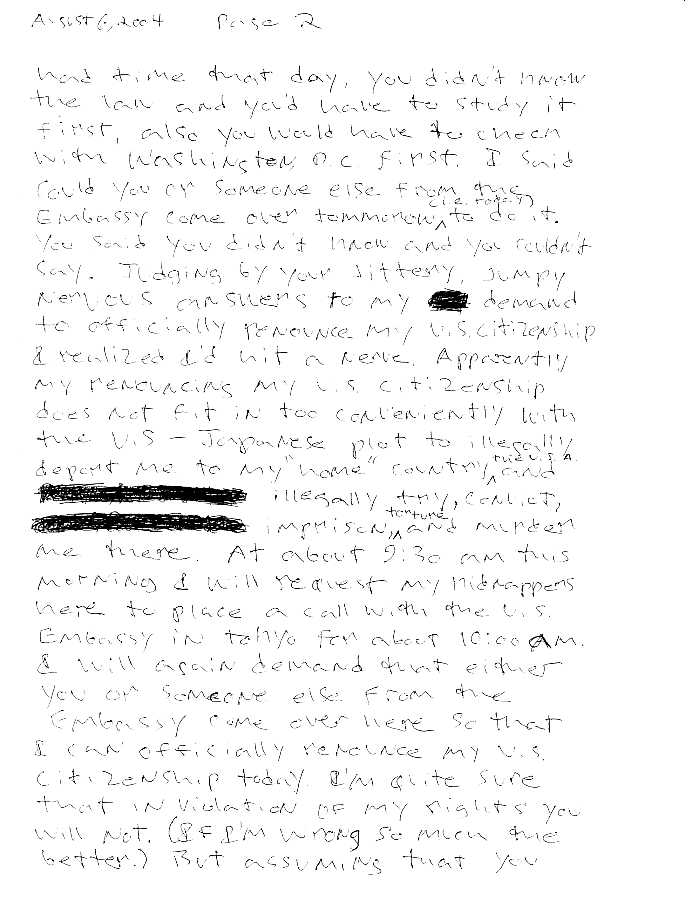 August 6, 2004 Page 2
had time that day, you didn't know
the law and you'd have to study it
first, also you would have to check
with Washington, D.C. first. I said
could you or someone else from the
Embassy come over tommorow, (i.e. today) to do it.
You said you didn't know and you couldn't
say. Judging by your jittery, jumpy
nervous answers to my demand
to officially renounce my U.S. citizenship
I realized I'd hit a nerve. Apparently
my renouncing my U.S. citizenship
does not fit in too conveniently with
the U.S - Japanese plot to illegally
deport me to my "home" country, the U.S.A. and
illegally try, convict,
imprison, torture and murder
me there. At about 9:30 am this
morning I will request my kidnappers
here to place a call with the U.S.
Embassy in tokyo for about 10:00 AM.
I will again demand that either
you or someone else from the
Embassy come over here so that
I can officially renounce my U.S.
citizenship today. I'm quite sure
that in violation of my rights you
will not. (If I'm wrong so much the
better.) But assuming that you